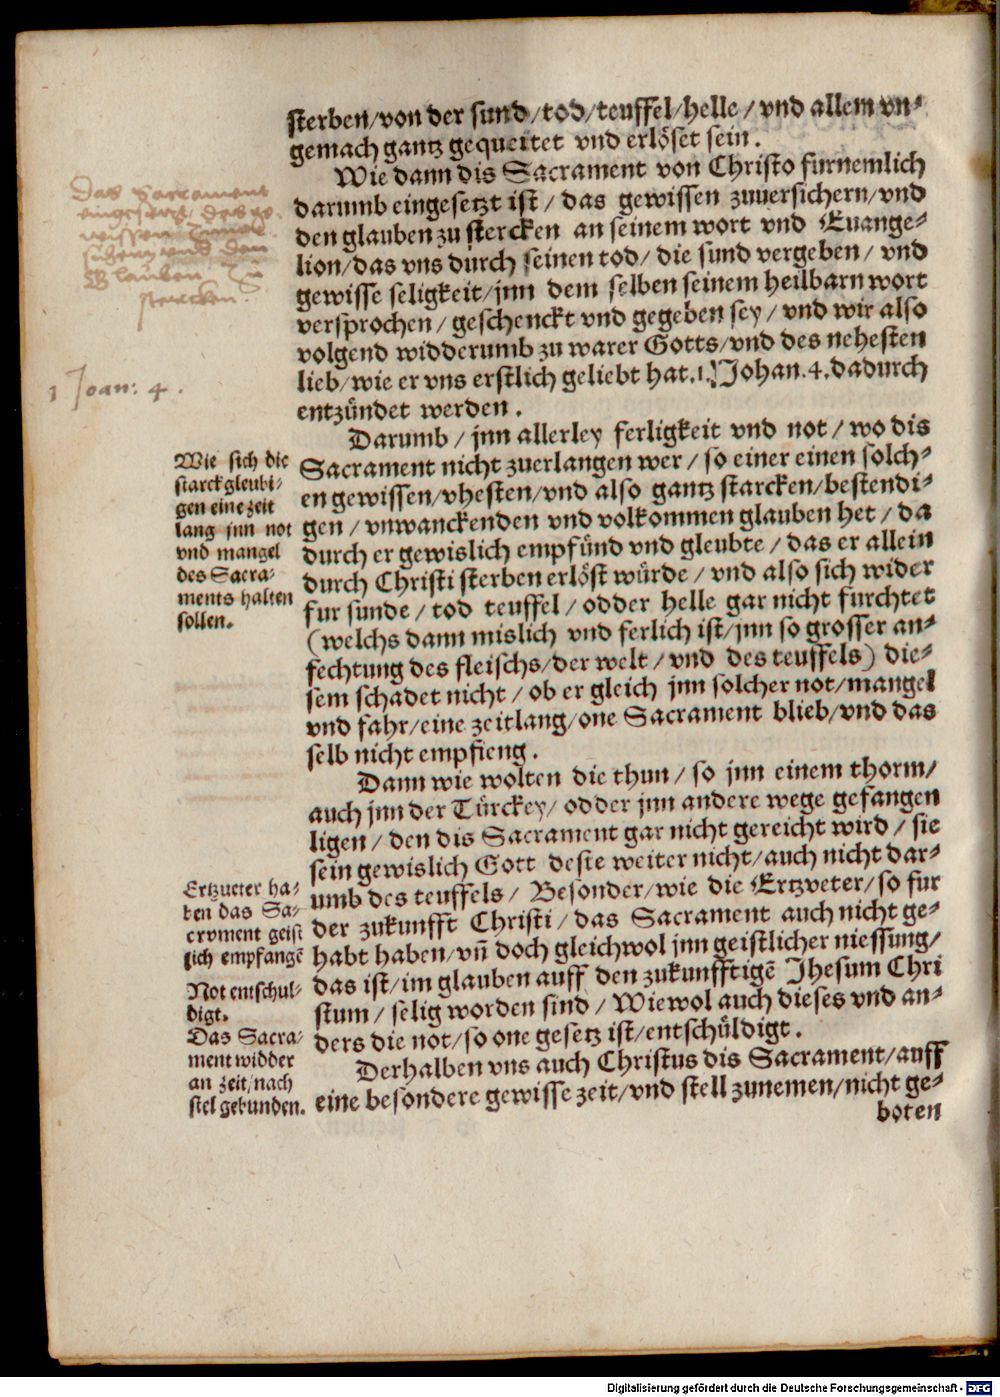 sterben/von der sund/tod/teuffel/helle/vnd allem vn-
gemach gantz gequeitet vnd erlöset sein.
Wie dann dis Sacrament von Christo furnemlich
darumb eingesetzt ist/das gewissen zuuersichern/vnd
den glauben zu stercken an seinem wort vnd Euange-
lion/das vns durch seinen tod/die sund vergeben/vnd
gewisse seligkeit/jnn dem selben seinem heilbarn wort
versprochen/geschenckt vnd gegeben sey/vnd wir also
volgend widderumb zu warer Gotts/vnd des nehesten
lieb/wie er vns erstlich geliebt hat.1.Johan.4.dadurch
entzündet werden.
Darumb/jnn allerley ferligkeit vnd not/wo dis
Sacrament nicht zuerlangen wer/so einer einen solch-
en gewissen/vhesten/vnd also gantz starcken/bestendi-
gen/vnwanckenden vnd volkommen glauben het/da
durch er gewislich empfünd vnd gleubte/das er allein
durch Christi sterben erlöst würde/vnd also sich wider
fur sunde/tod teuffel/odder helle gar nicht furchtet
(welchs dann mislich vnd ferlich ist/jnn so grosser an-
fechtung des fleischs/der welt/vnd des teuffels) die-
sem schadet nicht/ob er gleich jnn solcher not/mangel
vnd fahr/eine zeitlang/one Sacrament blieb/vnd das
selb nicht empfieng.
Dann wie wolten die thun/so jnn einem thorm/
auch jnn der Türckey/odder jnn andere wege gefangen
ligen/den dis Sacrament gar nicht gereicht wird/sie
sein gewislich Gott deste weiter nicht/auch nicht dar-
umb des teuffels/Besonder/wie die Ertzveter/so fur
der zukunfft Christi/das Sacrament auch nicht ge-
habt haben/vñ doch gleichwol jnn geistlicher niessung/
das ist/im glauben auff den zukunfftigẽ Jhesum Chri
stum/selig worden sind/Wiewol auch dieses vnd an-
ders die not/so one gesetz ist/entschüldigt.
Derhalben vns auch Christus dis Sacrament/auff
eine besondere gewisse zeit/vnd stell zunemen/nicht ge-
boten
Das Sacrament
eingesetzt das ge-
wissen zuuer-
sichern vnd den
Glauben zu
stercken.
1 Joan: 4.
Wie sich die
starckgleubi-
gen eine zeit
lang jnn not
vnd mangel
des Sacra-
ments halten
sollen.
Ertzueter ha-
ben das Sa-
crament geist
lich empfangẽ
Not entschul-
digt.
Das Sacra-
ment widder
an zeit/nach
stel gebunden.
Digitalisierung gefördert durch die Deutsche Forschungsgemeinschaft - DFG